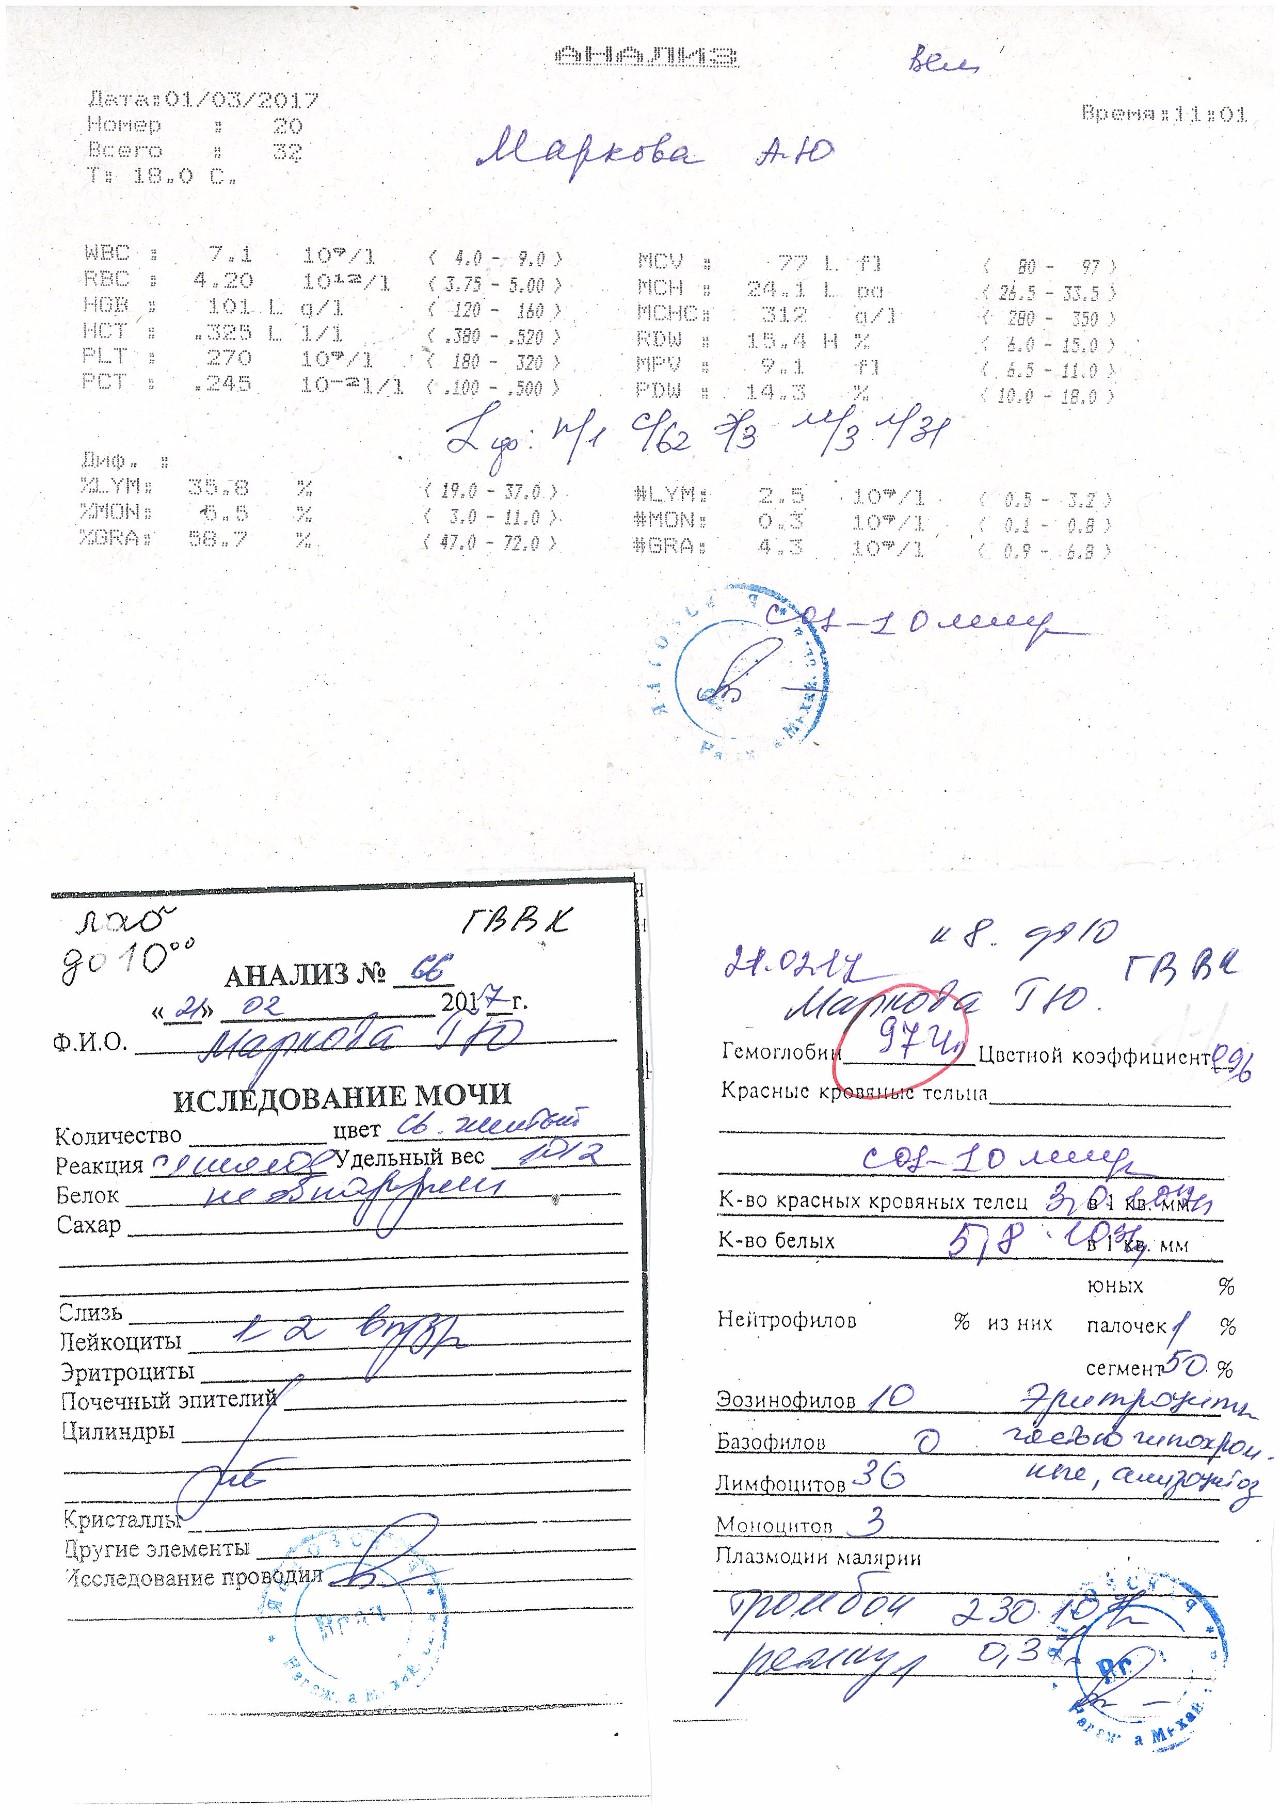 АНАЛИЗ
Дата:01/03/2017
Время:11:01
Номер : 20
Всего : 32
Т: 18.0 С.
Маркова А Ю
WBC : 7.1 10⁹/l ( 4.0 - 9.0 ) MCV : 77 L fl ( 80 - 97 )
RBC : 4.20 10¹²/l ( 3.75 - 5.00 ) MCH : 24.1 L pg ( 26.5 - 33.5 )
HGB : 101 L g/l ( 120 - 160 ) MCHC: 312 g/l ( 280 - 350 )
HCT : .325 L l/l ( .380 - .520 ) RDW : 15.4 H % ( 6.0 - 15.0 )
PLT : 270 10⁹/l ( 180 - 320 ) MPV : 9.1 fl ( 6.5 - 11.0 )
PCT : .245 10⁻²l/l ( .100 - .500 ) PDW : 14.3 % ( 10.0 - 18.0 )
Lф: п/1 с/62 э/3 м/3 л/31
Диф. :
%LYM: 35.8 % ( 19.0 - 37.0 ) #LYM: 2.5 10⁹/l ( 0.5 - 3.2 )
%MON: 5.5 % ( 3.0 - 11.0 ) #MON: 0.3 10⁹/l ( 0.1 - 0.8 )
%GRA: 58.7 % ( 47.0 - 72.0 ) #GRA: 4.3 10⁹/l ( 0.9 - 6.8 )
СОЭ-10 мм/ч
лаб ГВВК
до 10⁰⁰
АНАЛИЗ № 66
«21» 02 2017г.
Ф.И.О. Маркова Т Ю
ИСЛЕДОВАНИЕ МОЧИ
Количество цвет св. желтый
Реакция Удельный вес 1012
Белок не обнаружен
Сахар
Слизь
Лейкоциты 1-2 в п/зр
Эритроциты
Почечный эпителий
Цилиндры
Кристаллы
Другие элементы
Исследование проводил
Врач
к 8.
21.02.17 ГВВК
Маркова Т Ю.
Гемоглобин 97 г/л Цветной коэффициент 0,96
Красные кровяные тельца
СОЭ-10 мм/ч
К-во красных кровяных телец 3,0 · 10¹²/л в 1 кв. мм
К-во белых 5,8 · 10⁹/л в 1 кв. мм
юных %
Нейтрофилов % из них палочек 1 %
сегмент 50 %
Эозинофилов 10 Эритроциты
Базофилов 0 частью гипохром-
Лимфоцитов 36 ные, анизоцитоз
Моноцитов 3
Плазмодии малярии
тромбоц 230·10⁹/л
ретикул 0,3%